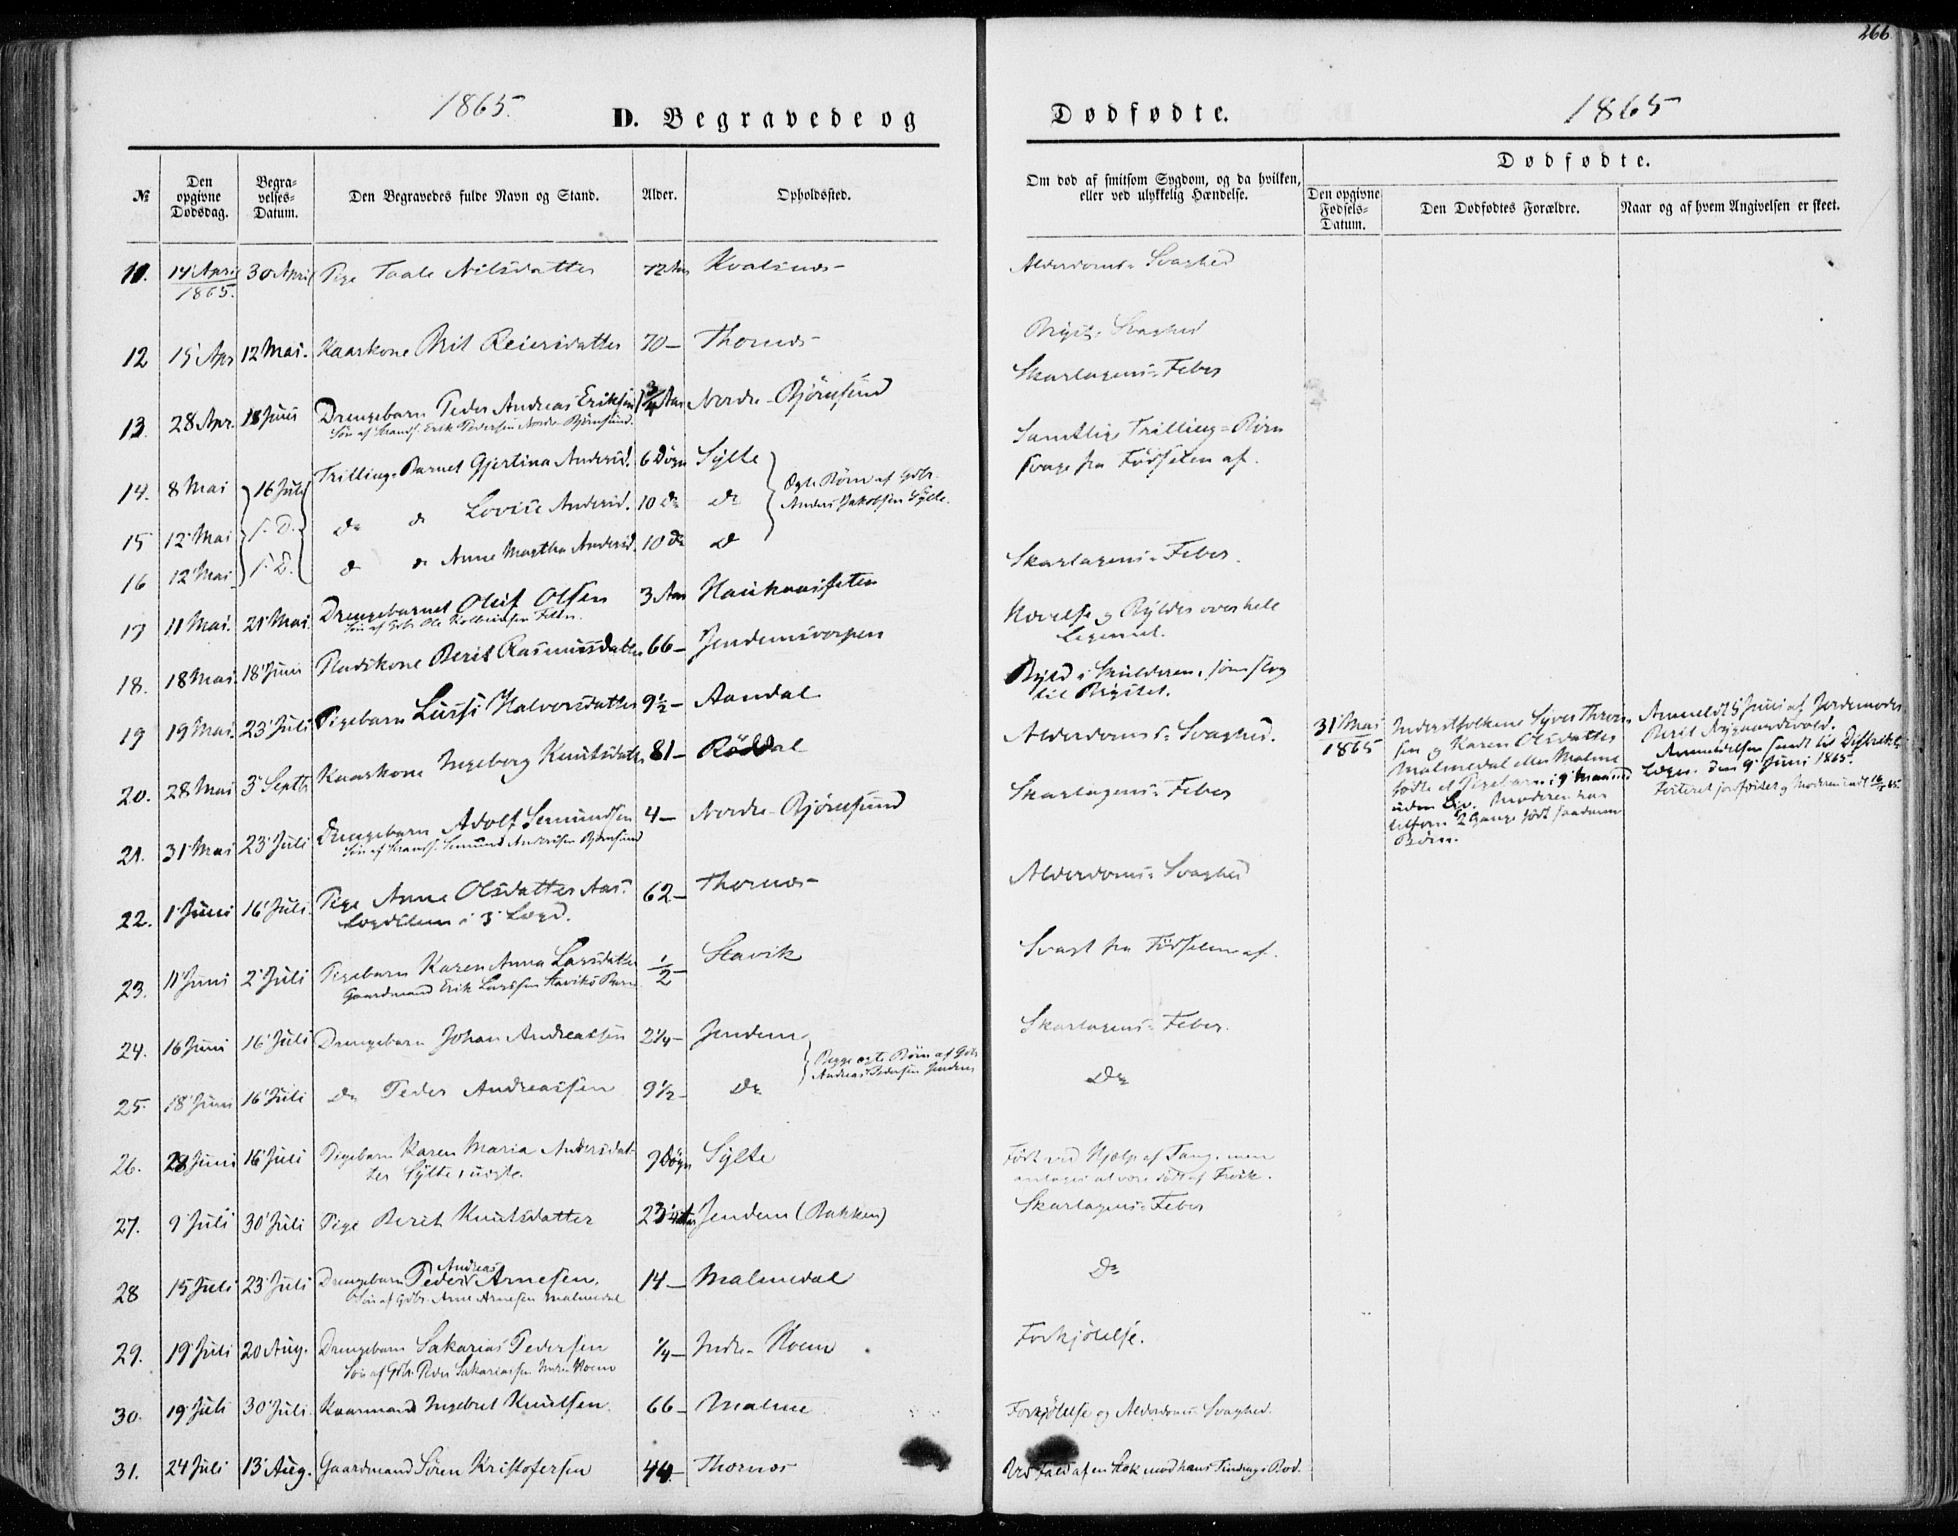 266
1865.
D. Begravede og
Dødfødte.
1865
№
Den opgivne Dødsdag.
Begravelses-Datum.
Den Begravedes fulde Navn og Stand.
Alder.
Opholdssted.
Om død af smitsom Sygdom, og da hvilken, eller ved ulykkelig Hændelse.
Dødfødte.
Den opgivne Fødsels-Datum.
Den Dødfødtes Forældre.
Naar og af hvem Angivelsen er skeet.
11. 14 April 1865. 30 April Pige Nilsdatter 72 Aar Kvalsnes Alderdoms-Svaghed
12 15 Apr 12 Mai. Kaarkone Brit Reiersdatter 70 – Thornæs Bryst-Svaghed
13. 28 Apr. 18 Juni Drengebarn Peder Andreas Eriksen 3/4 Aar Nordre-Bjørnsund Skarlagens-Feber
Søn af Erik Pedersen Nordre Bjørnsund.
14. 8 Mai 16 Juli Trillinge-Barnet Gjertina Andersd. 6 Døgn Sylte Samtlige Trilling-Børn
svage fra Fødselen af.
15 12 Mai s. D. Do do Lovise Andersd. 10 Do Do Ægte Børn af Gdbr.
Anders Jakobsen Sylte.
16 12 Mai s. D. do do Anne Martha Andersd. 10 Do do
17 11 Mai. 21 Mai. Drengebarnet Oluf Olsen 3 Aar Skarlagens-Feber.
Søn af Gdbr. Ole
18. 18 Mai. 18 Juni Pladskone Berit Rasmusdatter 66 – Hævelse og Bylder over hele
Legemet.
19 19 Mai. 23 Juli Pigebarn Lussi Halvorsdatter 9½ – Aandal Byld i Skulderen, som slog
til Brystet.
20. 28 Mai 3 Septb. Kaarkone Ingeborg Knutsdatter 81 – Røddal Alderdoms-Svaghed.
31 Mai 1865
Inderstfolkene Syver
sen og Karen Olsdatter
Malmedal eller Malme
fødte et Pigebarn i 9 Maaned
uden Liv. Moderen har
tilforn 2 Gange født saadanne
Børn.
Anmeldt 5 Juni af Jordemoder
Berit
Anmeldelsen sendt til Distrikts
Lægen den 9 Juni 1865.
21. 31 Mai 23 Juli Drengebarn Adolf Semundsen 4 – Nordre-Bjørnsund Skarlagens-Feber
Søn af Semund Andersen Bjørnsund
22. 1 Juni 16 Juli. Pige Anne Olsdatter Aas. 62 – Thornæs Alderdoms-Svaghed
Lægdslem i 3 Lægd.
23. 11 Juni 2 Juli Pigebarn Karen Anna Larsdatter ½ – Stavik Svagt fra Fødselen af.
Gaardmand Erik Larssen Staviks Barn
24. 16 Juni 16 Juli Drengebarn Johan Andreassen 2¼ – Jendem Skarlagens-Feber.
Begge ægte Børn af Gdbr.
Andreas Pedersen Jendem
25. 18 Juni 16 Juli Do Peder Andreassen 9½ – Do Do
26. 28 Juni 16 Juli Pigebarn Karen Maria Andersdat-
ter Sylte, uægte. 9 Døgn Sylte Født ved Hjælp af Tang, men
27. 9 Juli 30 Juli Pige Berit Knutsdatter 23 Jendem (Bakken) Skarlagens-Feber
28 15 Juli 23 Juli Drengebarn Peder Andreas Arnesen. 14 – Malmedal Do
Søn af Gdbr. Arne Arnesen Malmedal
29. 19 Juli 20 Aug. Drengebarn Sakarias Pedersen ¼ – Indre-Hoem Forkjølelse.
Søn af Gdbr. Peder Sakariassen Indre Hoem
30. 19 Juli 30 Juli. Kaarmand Ingebret Knutsen. 66 – Malme Forkjølelse og Alderdoms-Svaghed.
31. 24 Juli 13 Aug. Gaardmand Søren Kristofersen 44 – Thornæs Ved Fald af en Stok mod hans